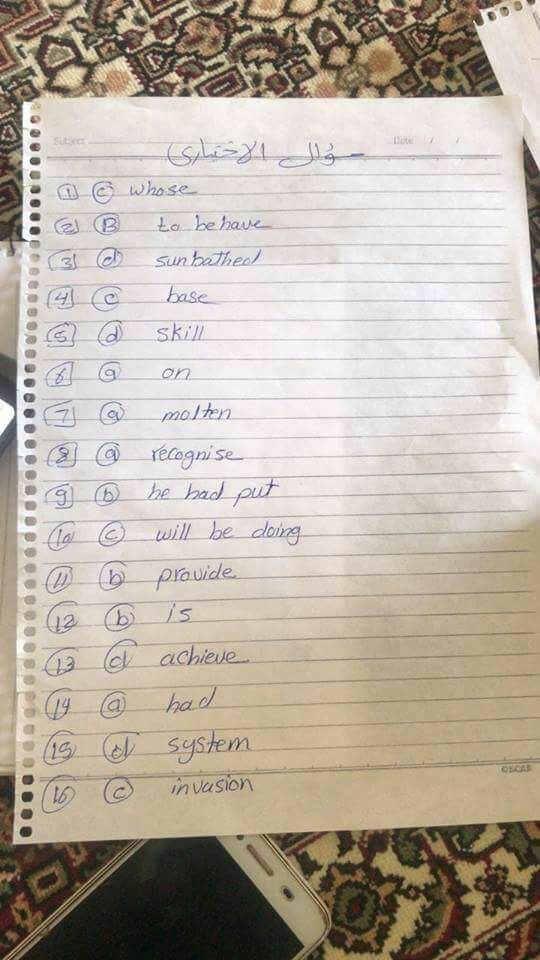 Subject
Date / /
سؤال الاختياری
1 c whose
2 B to behave
3 d sunbathed
4 c base
5 d skill
6 a on
7 a molten
8 a recognise
9 b he had put
10 c will be doing
11 b provide
12 b is
13 d achieve
14 a had
15 d system
16 c invasion